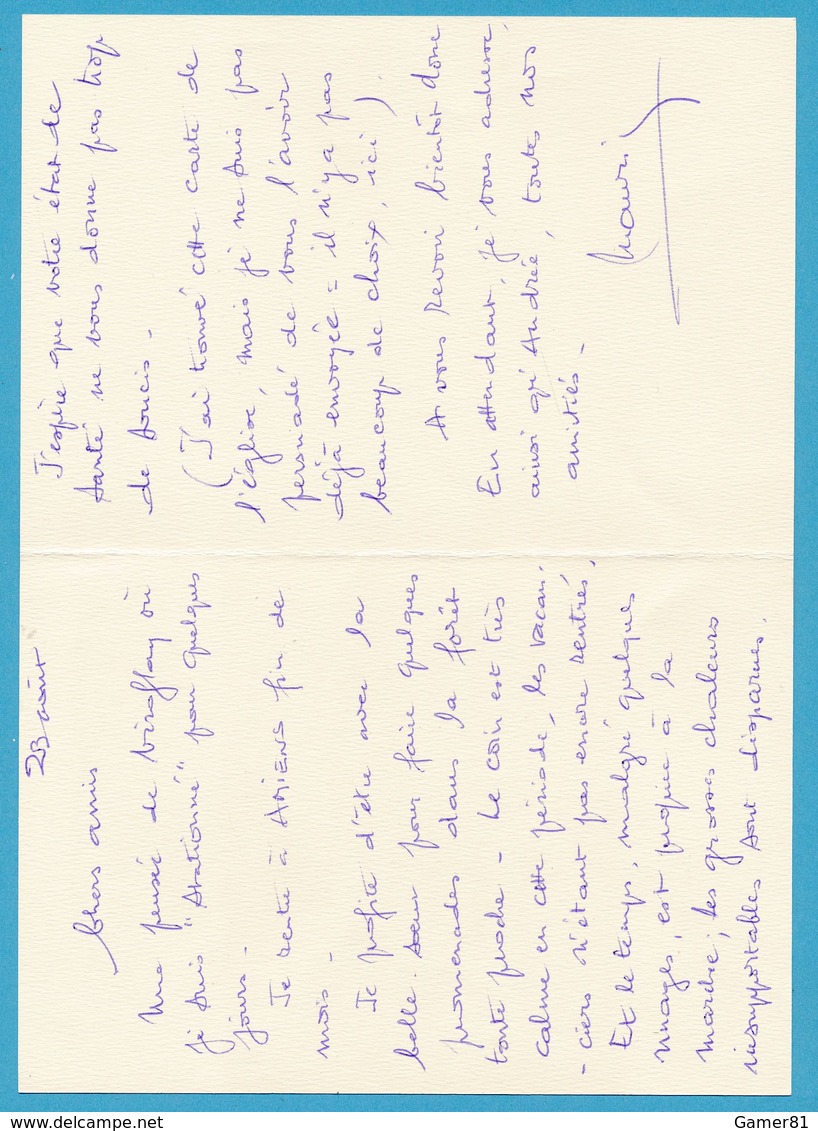 23 août
Chers amis
Une pensée de Viroflay où
je suis "stationné" pour quelques
jours.
Je rentre à AMIENS fin de
mois -
Je profite d'être avec la
belle-sœur pour faire quelques
promenades dans la forêt
toute proche - Le coin est très
calme en cette période, les vacan-
-ciers n'étant pas encore rentrés.
Et le temps, malgré quelques
nuages, est propice à la
marche ; les grosses chaleurs
insupportables sont disparues.
J'espère que votre état de
santé ne vous donne pas trop
de soucis -
(J'ai trouvé cette carte de
l'église, mais je ne suis pas
persuadé de vous l'avoir
déjà envoyée = il n'y a pas
beaucoup de choix, ici).
A vous revoir bientôt donc
En attendant, je vous adresse,
ainsi qu'Andrée, toutes nos
amitiés -
delcampe.net
Gamer81